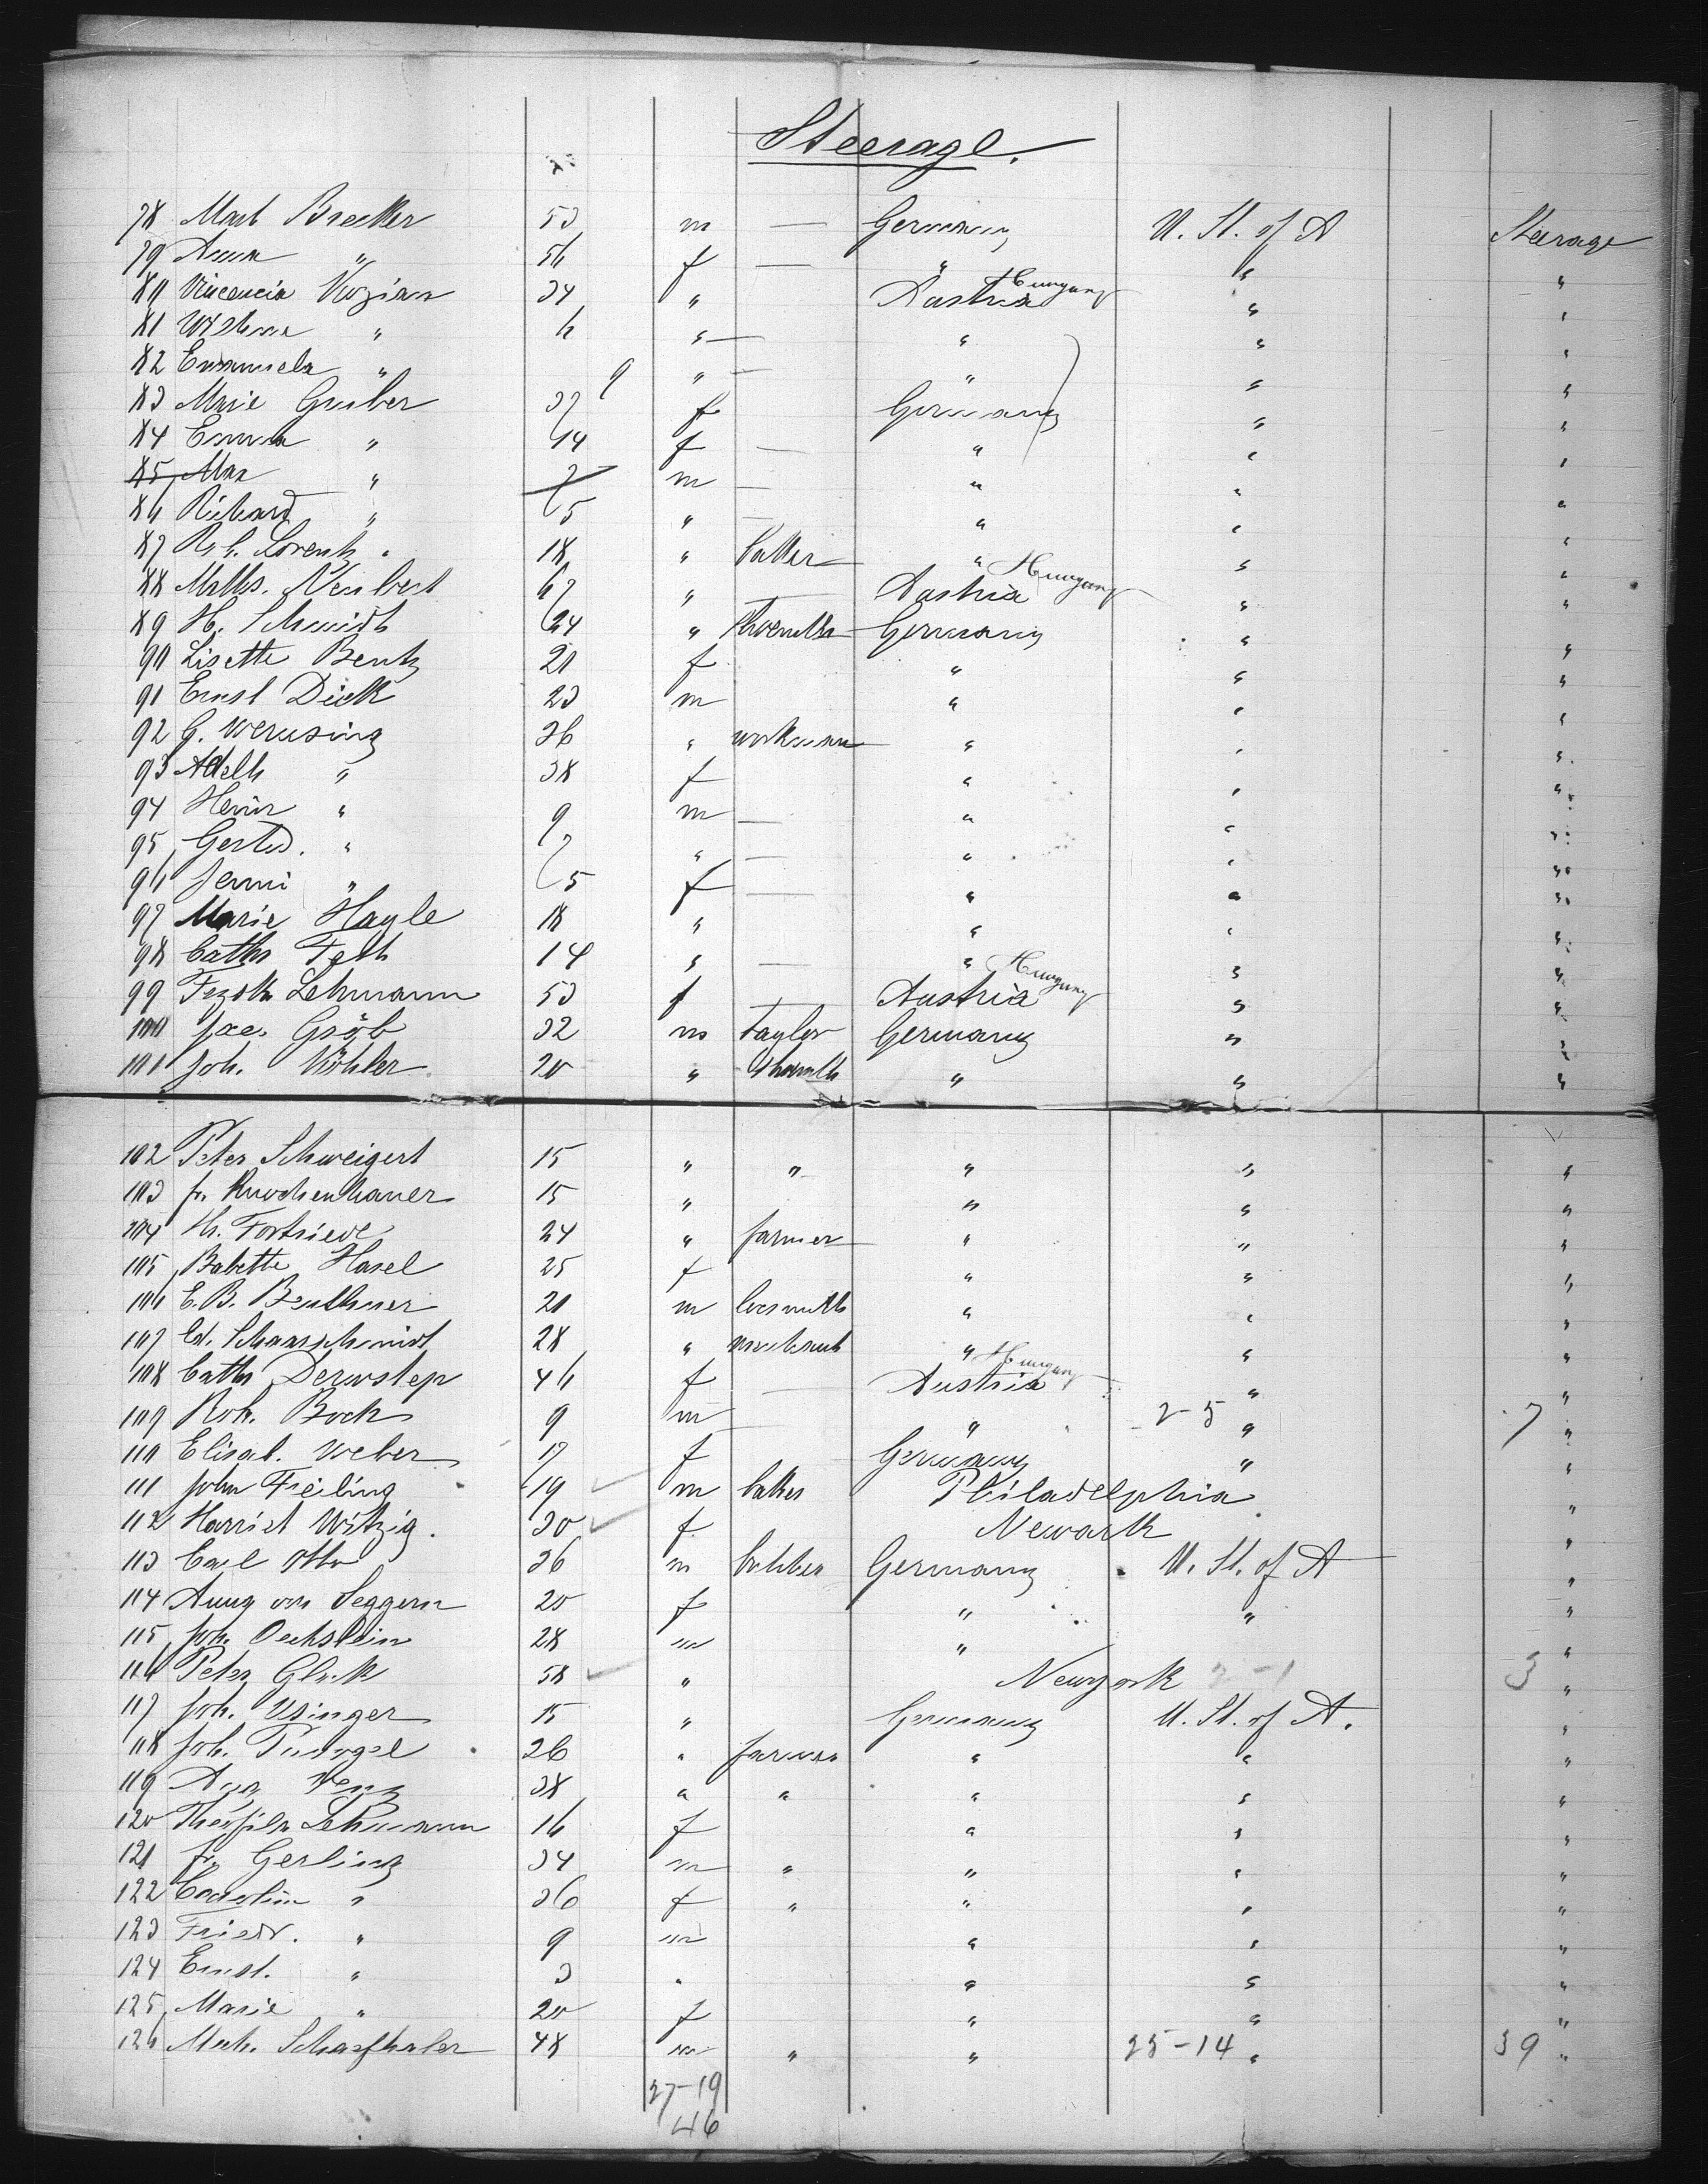 Steerage.
78 Mart Brecker 53 m — Germany U. St. of A Steerage
79 Anna " 56 f — " " "
80 Vincencia Kozian 34 " Austria Hungary " "
81 " 6 " — " " "
82 Emanuela " 9 " — " " "
83 Marie Gruber 37 f Germany " "
84 Emma " 14 f — " " "
85 Max " 7 m — " " "
86 Richard " 5 " — " " "
87 Rob. Lorentz 18 " " " "
88 Maths. Neubert 67 " — Austria Hungary " "
89 H. Schmidt 24 " Germany " "
90 Lisette Bentz 21 f " " "
91 Ernst Dick 23 m " " "
92 G. Werusing 36 " workman " " "
93 Adelh " 38 f " " "
94 Heinr " 9 m — " " "
95 Gertrd. " 7 " — " " "
96 Jenni " 5 f — " " "
97 Marie Hagle 18 " " " "
98 Cath Feth 14 " — " " "
99 Lehmann 53 f — Austria Hungary " "
100 Jac. Gröb 32 m Taylor Germany " "
101 Joh. Köhler 20 " " " "
102 Peter Schweigert 15 " " " " "
103 fr. Knochenhauer 15 " " " "
104 H. Fortriede 24 " farmer " " "
105 Babette Hasel 25 f " " "
106 E. B. 21 m " " "
107 Ed. Schaarschmidt 28 " " " "
108 Cath 46 f — Austria Hungary " "
109 Rob. Bock 9 m — " 2-5 " 7 "
110 Elisab. Weber 17 f Germany " "
111 John Freiling 19 m Philadelphia "
112 Harriet Witzig. 30 f Newark "
113 Carl Otto 36 m Germany U. St. of A "
114 Anny von Seggern 20 f " " "
115 Joh. Oechslein 28 m " "
116 Peter Gluck 58 " Newyork 2-1 3 "
117 Joh. Usinger 15 " Germany U. St. of A. "
118 Joh. 26 " farmer " " "
119 Aug 38 " " " " "
120 Lehmann 16 f " " "
121 fr. Gerling 34 m " " " "
122 Carolin " 36 f " " " "
123 Friedr. " 9 m " " "
124 Ernst. " 3 " " " "
125 Marie " 20 f " " "
126 Mich. Schafhaler 48 m " " 25-14 " 39 "
27-19
46